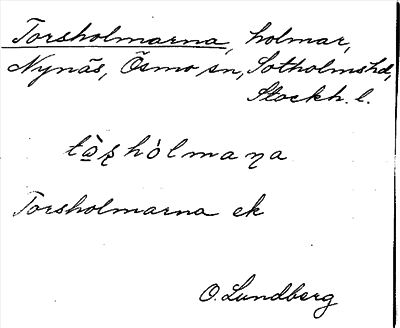 Torsholmarna, holmar,
Nynäs, Ösmo sn, Sotholms hd,
Stockh. l.
Torsholmarna ek
O. Lundberg